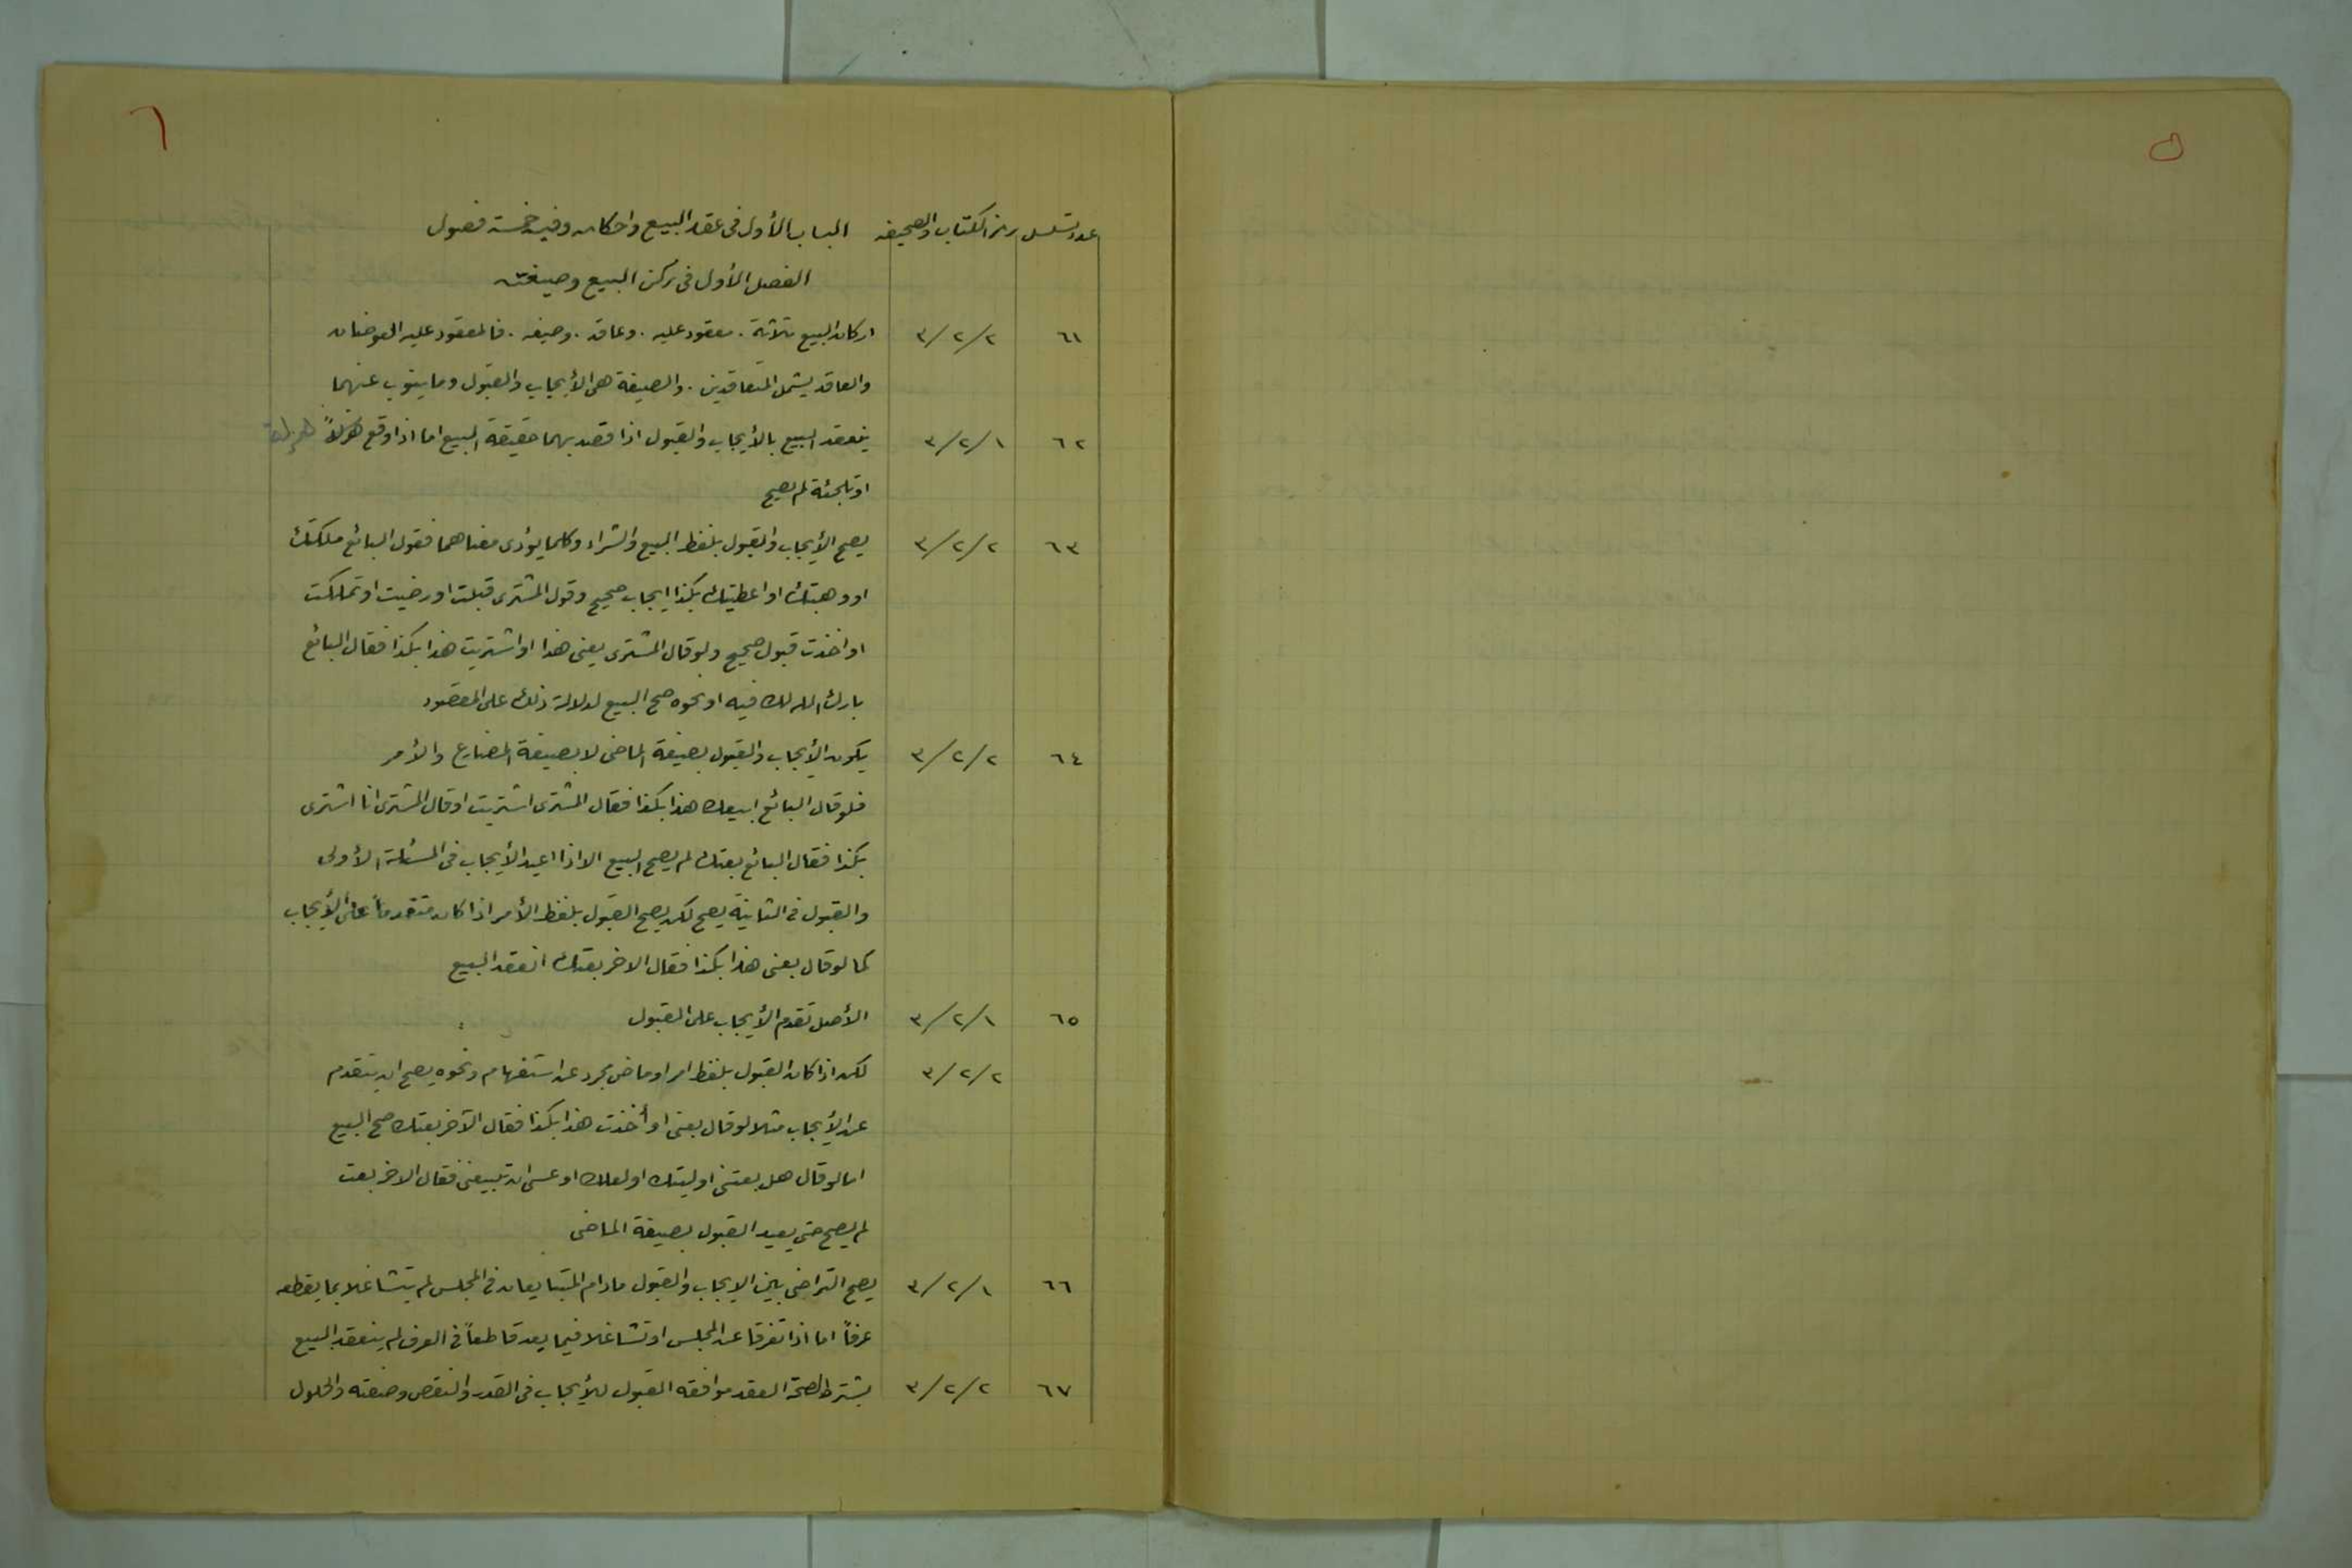 ٥
٦
عدد تسلسل رمز الكتاب والصحيفه الباب الأول فى عقد البيع واحكامه وفيه خمسة فصول
الفصل الأول فى ركن البيع وصيغته
٦١ ٣/٢/٢ اركان البيع ثلاثة . معقود عليه . وعاقد . وصيغه . فالمعقود عليه العوضان
والعاقد يشمل المتعاقدين . والصيغة هى الأيجاب والقبول وما ينوب عنهما
٦٢ ٣/٢/١ ينعقد البيع بالأيجاب والقبول اذا قصد بهما حقيقة البيع اما اذا وقع هزلاً
او تلجئة لم يصح
٦٣ ٣/٢/٢ يصح الأيجاب والقبول بلفظ البيع والشراء وكلما يؤدى معناهما فقول البائع ملكتك
او وهبتك او اعطيتك بكذا ايجاب صحيح وقول المشترى قبلت او رضيت او تملكت
او اخذت قبول صحيح ولو قال المشترى بعنى هذا او اشتريت هذا بكذا فقال البائع
بارك الله لك فيه او نحوه صح البيع لدلالة ذلك على المقصود
٦٤ ٣/٢/٢ يكون الأيجاب والقبول بصيغة الماضى لا بصيغة المضارع والأمر
فلو قال البائع ابيعك هذا بكذا فقال المشترى اشتريت او قال المشترى انا اشترى
بكذا فقال البائع بعتك لم يصح البيع الا اذا اعيد الأيجاب فى المسئلة الأولى
والقبول فى الثانية يصح لكن يصح القبول بلفظ الأمر اذا كان متقدماً على الأيجاب
كما لو قال بعنى هذا بكذا فقال الاخر بعتك انعقد البيع
٦٥ ٣/٢/١ الأصل تقدم الأيجاب على القبول
٣/٢/٢ لكن اذا كان القبول بلفظ امر او ماض مجرد عن استفهام ونحوه يصح ان يتقدم
عن الأيجاب مثلا لو قال بعنى او أخذت هذا بكذا فقال الآخر بعتك صح البيع
اما لو قال هل بعتنى او ليتك او لعلك او عسى ان تبيعنى فقال الاخر بعت
لم يصح حتى يعيد القبول بصيغة الماضى
٦٦ ٣/٢/١ يصح التراخى بين الايجاب والقبول مادام المتبايعان فى المجلس لم يتشاغلا بما يقطعه
عرفاً اما اذا تفرقا عن المجلس او تشاغلا فيما يعد قاطعاً فى العرف لم ينعقد البيع
٦٧ ٣/٢/٢ يشترط لصحة العقد موافقه القبول للأيجاب فى القدر والنقص وصفته والحلول